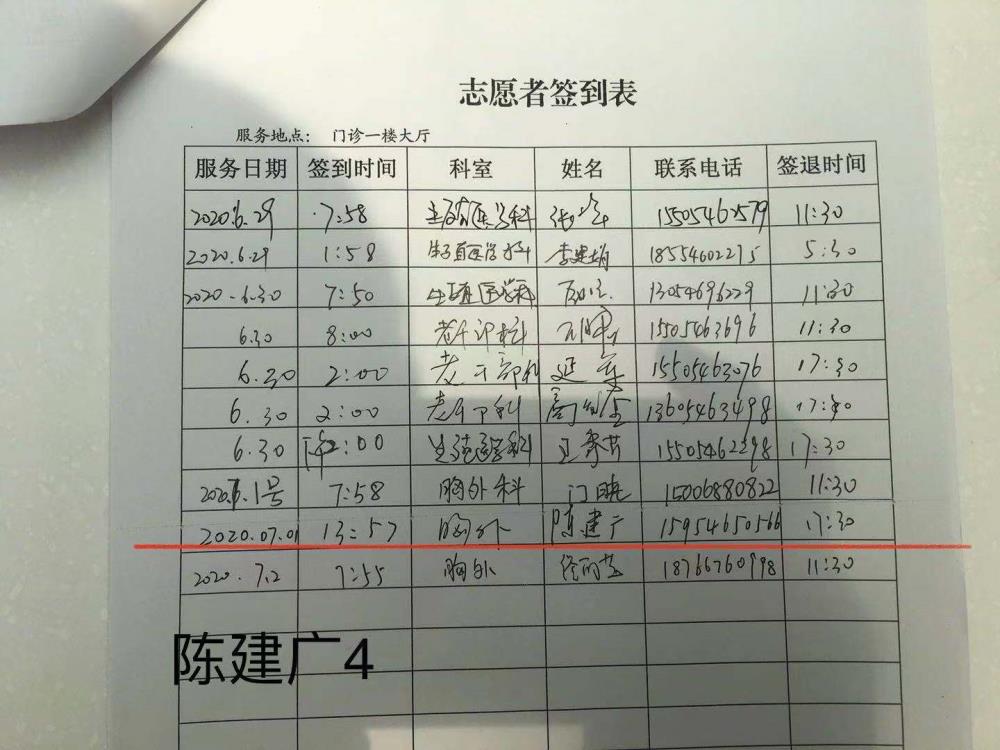 志愿者签到表
服务地点: 门诊一楼大厅
服务日期 签到时间 科室 姓名 联系电话 签退时间
2020.6.29 7:58 生殖医学科 1505462579 11:30
2020.6.29 1:58 生殖医学科 李建娟 18554602275 5:30
2020.6.30 7:50 生殖医学科 13054696229 11:30
6.30 8:00 老干部科 1505463696 11:30
6.30 2:00 老干部科 延军 15505463076 17:30
6.30 2:00 老干部科 13605463498 17:30
6.30 下午2:00 生殖医学科 王秀芳 15505462298 17:30
7:58 胸外科 门晓 15006880822 11:30
2020.07.01 13:57 胸外 陈建广 15954650566 17:30
2020.7.2 7:55 胸外 18766760998 11:30
陈建广4